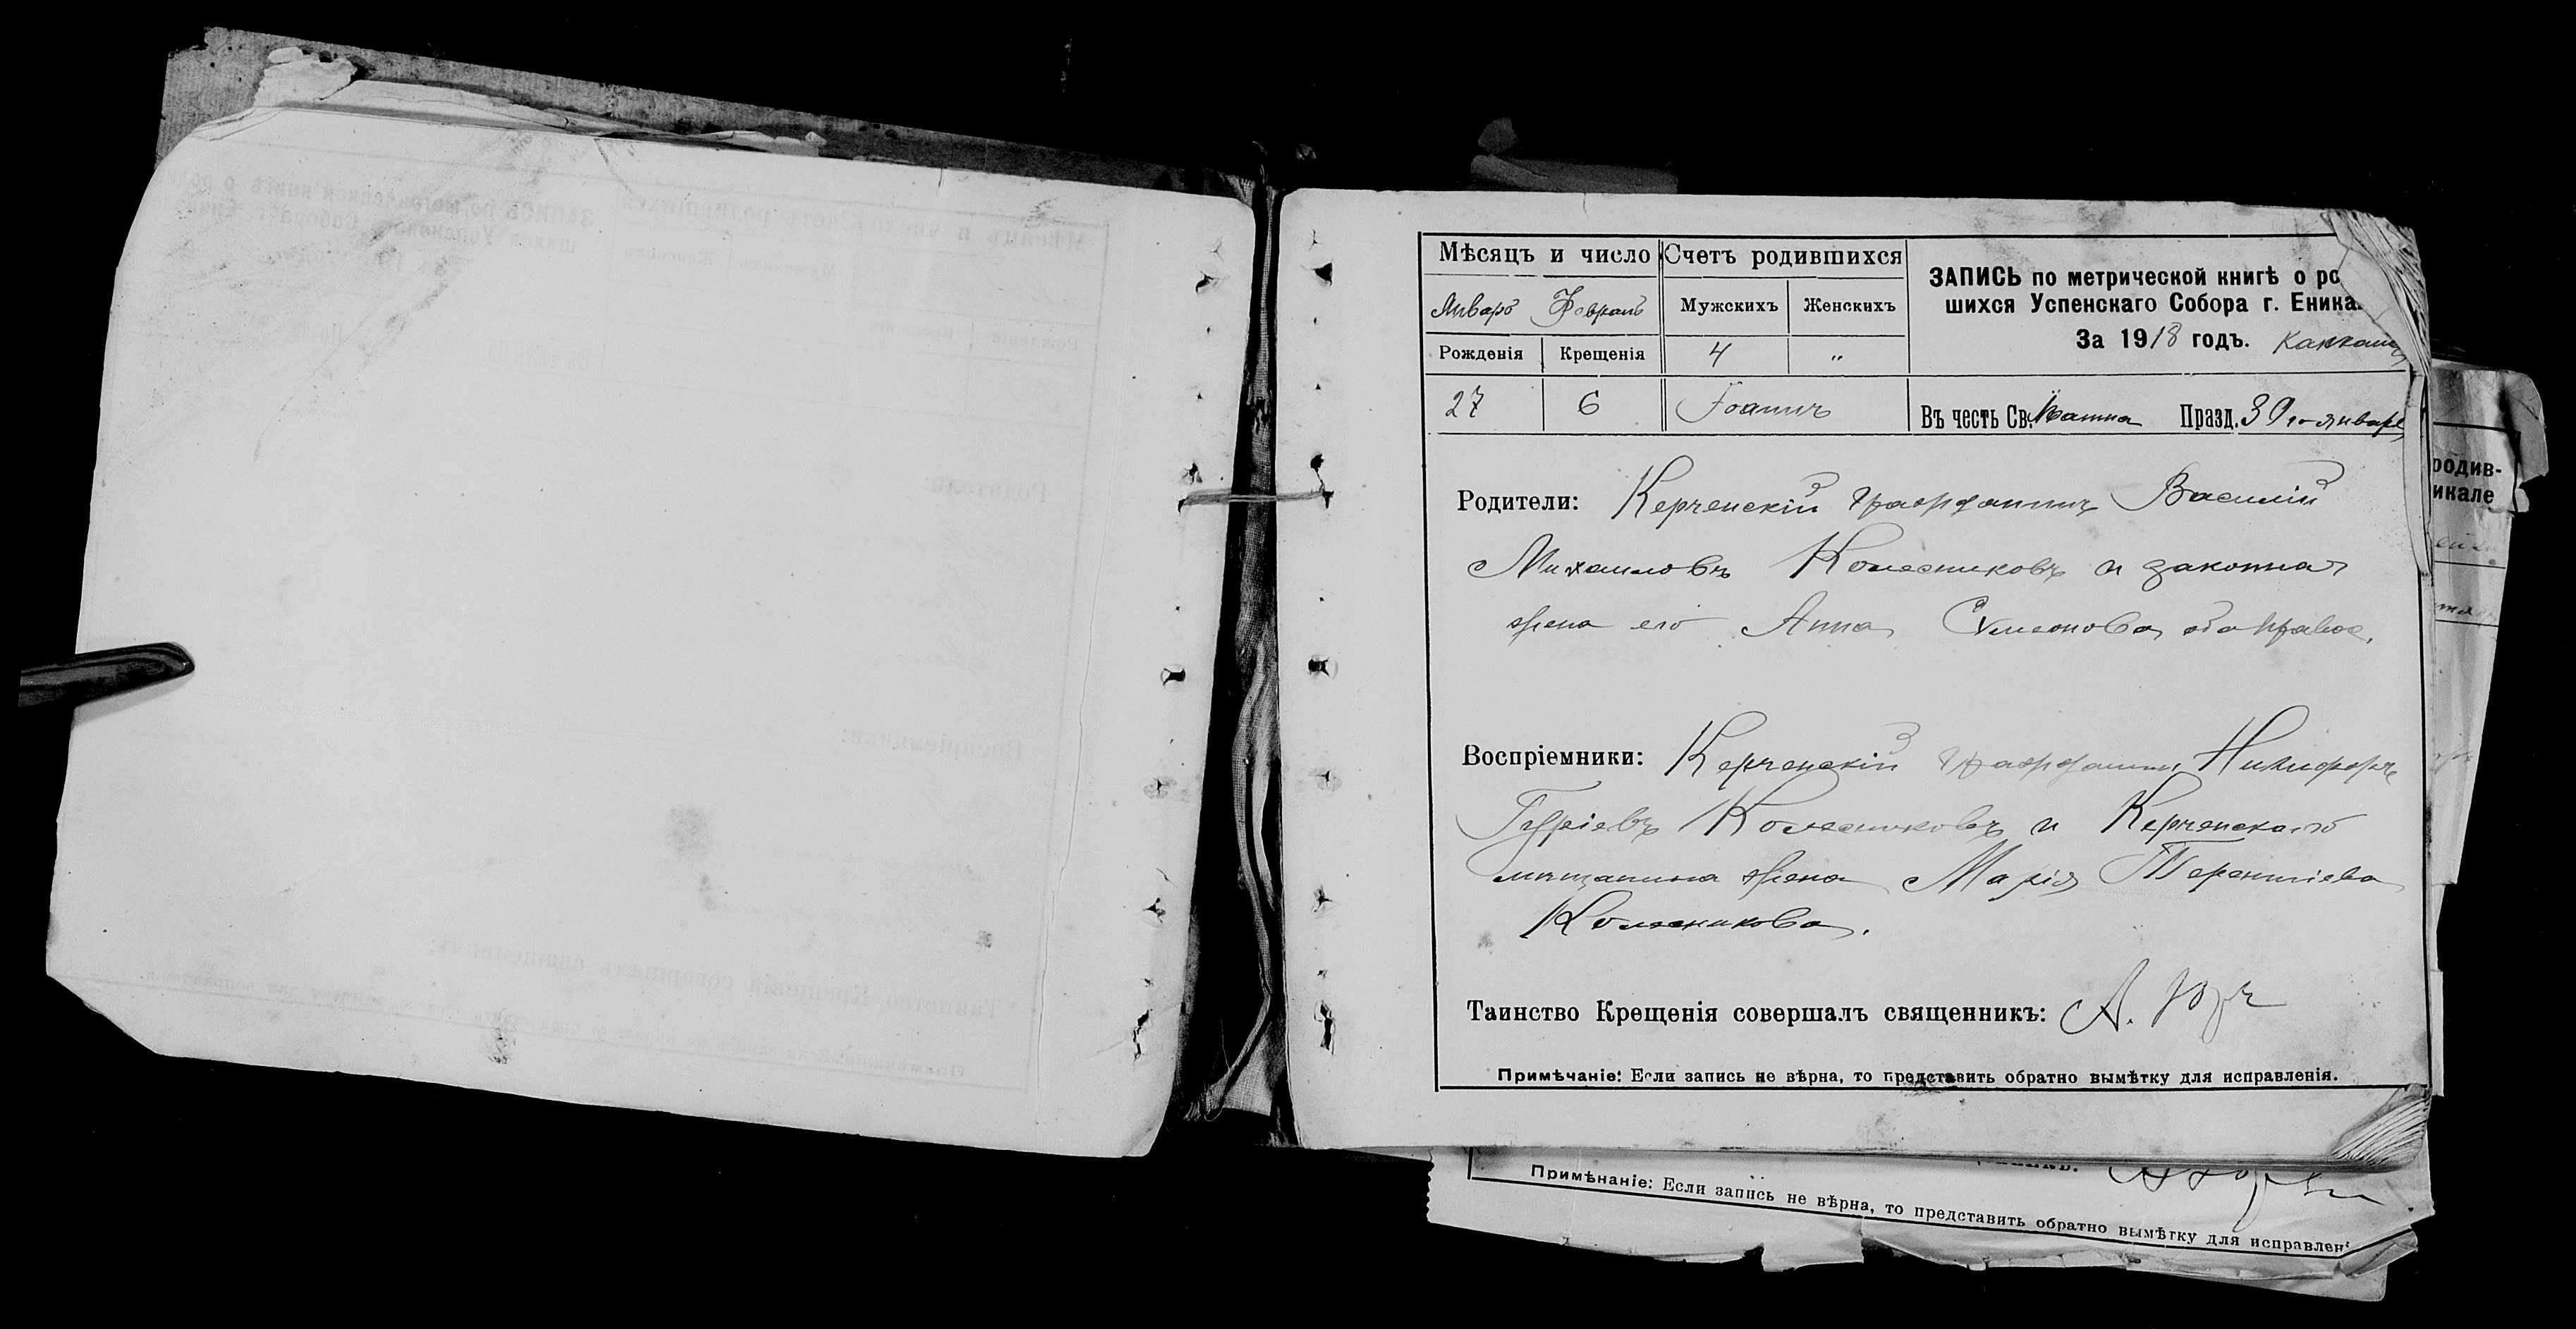 Мѣсяцъ и число
Счетъ родившихся
ЗАПИСЬ по метрической книгѣ о ро
шихся Успенскаго Собора г. Еника
За 1918 годъ.
Январь Февраль
Мужскихъ Женскихъ
Рожденія Крещенія
4 "
27 6 Іоаннъ
Въ честь Св. Іоанна Празд. 30го января
Родители: Керченскій гражданинъ Василій
Михаиловъ Колесниковъ и законная
жена его Анна Сѵмеонова оба правос.
Воспріемники: Керченскій гражданинъ Никифоръ
Гуріевъ Колесниковъ и Керченскаго
мѣщанина жена Марія Терентіева
Колесникова.
Таинство Крещенія совершалъ священникъ: А.
Примѣчаніе: Если запись не вѣрна, то представить обратно вымѣтку для исправленія.
родив-
икале
Примѣнаніе: Если запись не вѣрна, то представить обратно вымѣтку для исправлен